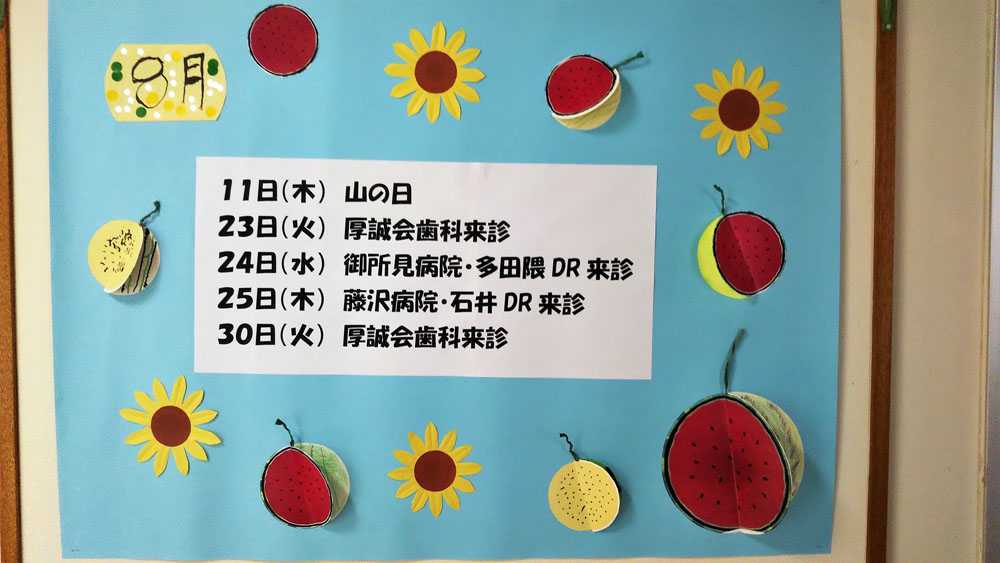 8月
11日(木) 山の日
23日(火) 厚誠会歯科来診
24日(水) 御所見病院・多田隈DR来診
25日(木) 藤沢病院・石井DR来診
30日(火) 厚誠会歯科来診